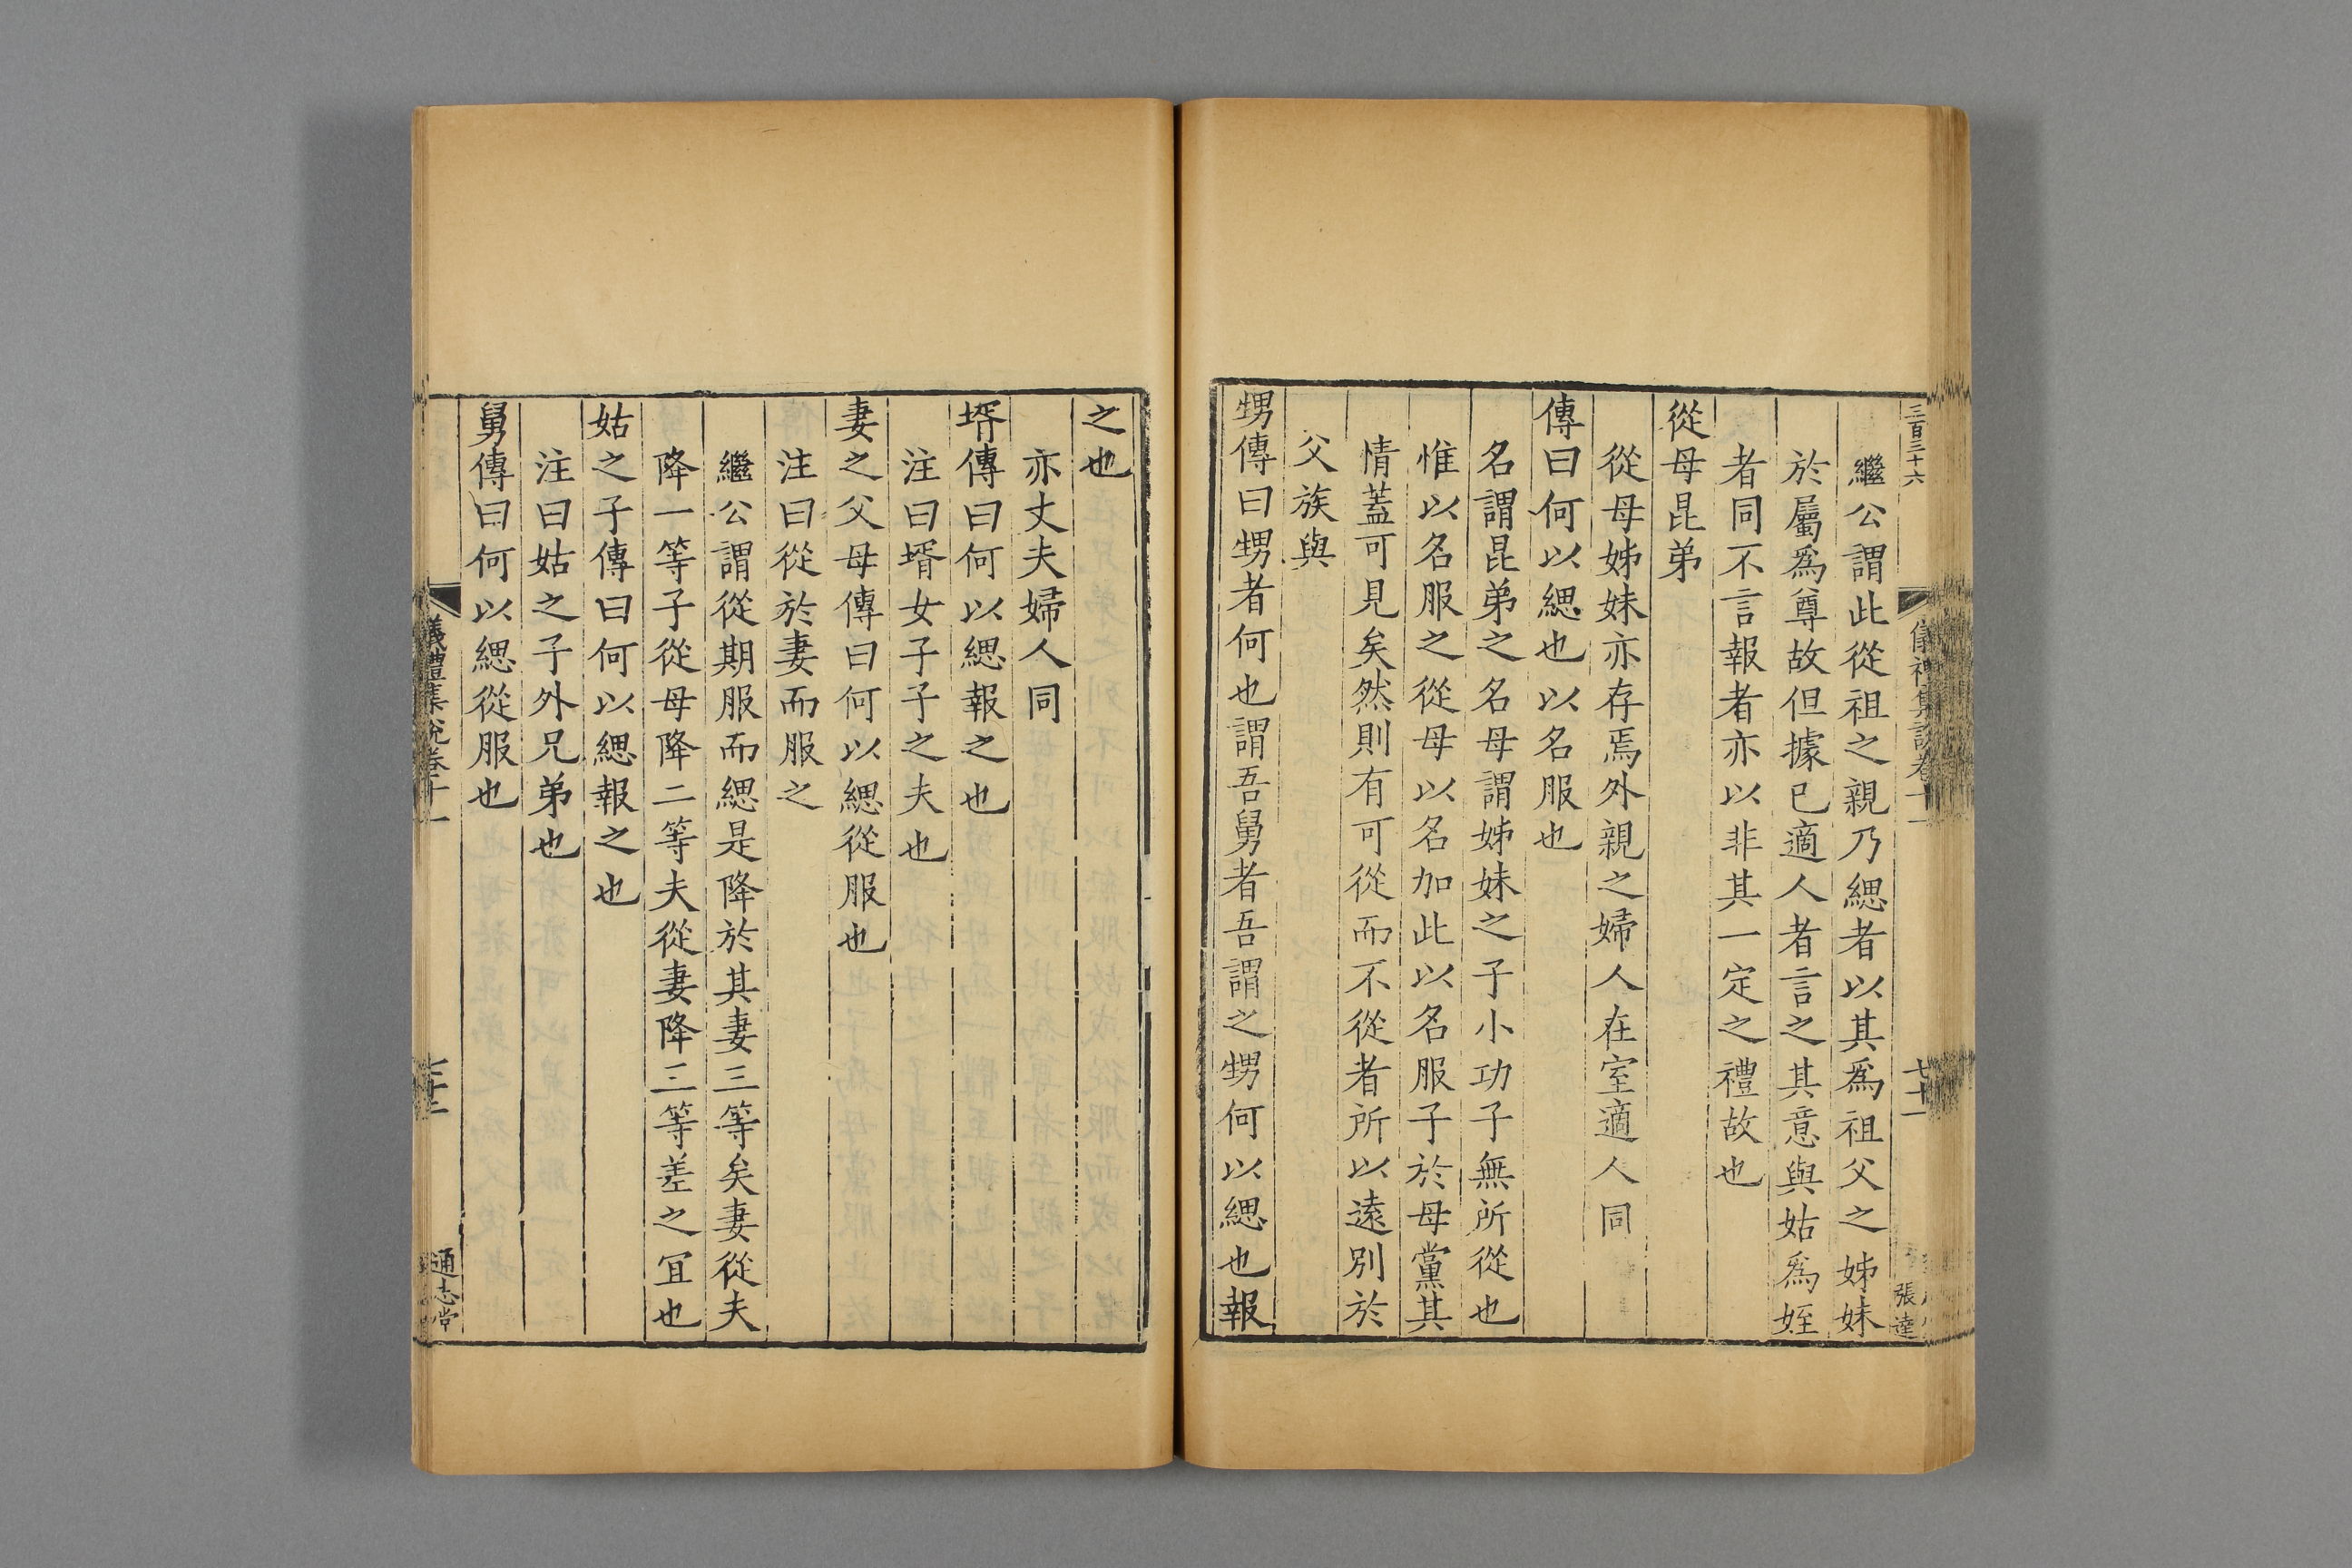 三百三十六
儀禮集說卷十一
七十一
張達
繼公謂此從祖之親乃緦者以其爲祖父之姊妹
於屬爲尊故但據已適人者言之其意與姑爲姪
者同不言報者亦以非其一定之禮故也
從母昆弟
從母姊妹亦存焉外親之婦人在室適人同
傳曰何以緦也以名服也
名謂昆弟之名母謂姊妹之子小功子無所從也
惟以名服之從母以名加此以名服子於母黨其
情蓋可見矣然則有可從而不從者所以遠別於
父族與
甥傳曰甥者何也謂吾舅者吾謂之甥何以緦也報
之也
亦丈夫婦人同
壻傳曰何以緦報之也
注曰壻女子子之夫也
妻之父母傳曰何以緦從服也
注曰從於妻而服之
繼公謂從期服而緦是降於其妻三等矣妻從夫
降一等子從母降二等夫從妻降三等差之宜也
姑之子傳曰何以緦報之也
注曰姑之子外兄弟也
舅傳曰何以緦從服也
儀禮集說卷十一
七十二
通志堂